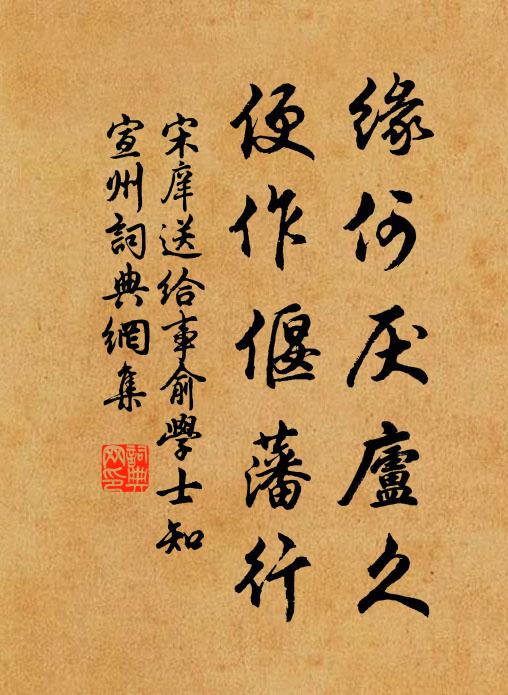 緣何厌廬久
便作偃藩行
宋庠送給事俞學士知
宣州詞典網集
詞典网印